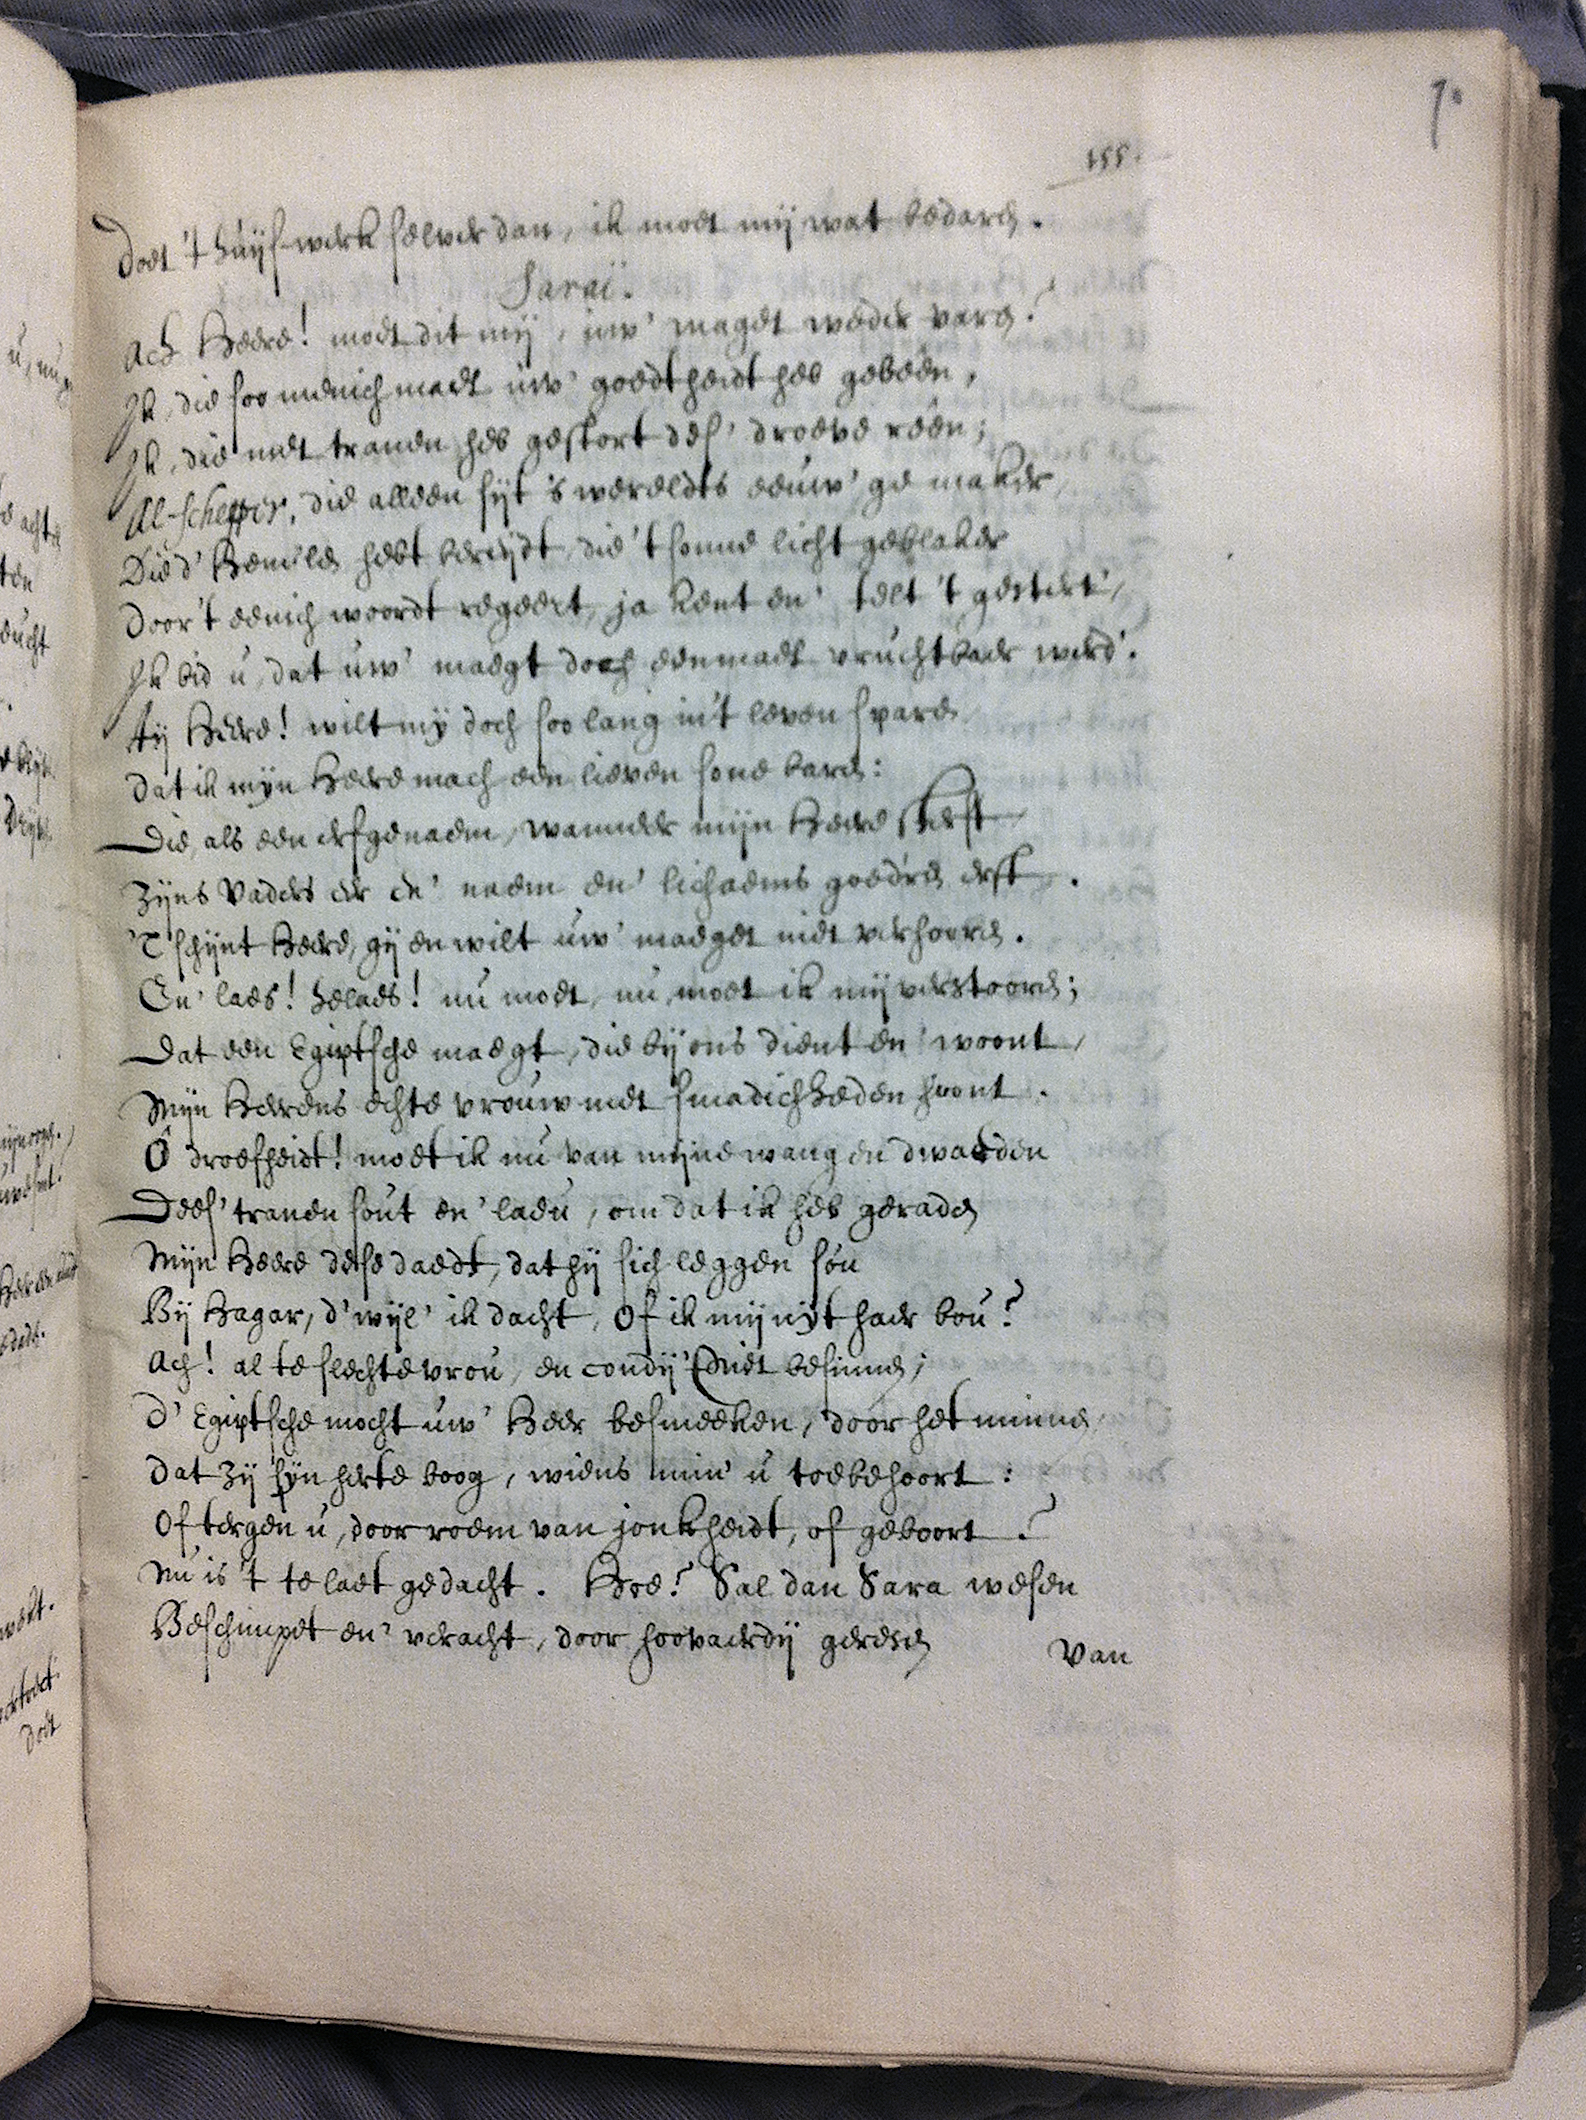 7.
155.
Doet 't huijs-werk selver dan, ik moet mij wat bedaren.
Saraï.
Ach Heere! moet dit mij, uw' maget weder varen?
Ik, die soo menichmael uw' goedtheidt heb gebeên,
Ik, die met tranen heb gestort des' droeve reên;
Al-schepper, die alleen sijt 's wereldts eeuw'ge maker,
Die d' Hemelen hebt bereijdt, die 't sonne licht geblaker
Door 't eenich woordt regeert, ja kent en' telt 't gestert',
Ik bid u, dat uw' maegt doch eenmael vruchtbaer werd'.
Aij Heere! wilt mij doch soo lang in't leven sparen
Dat ik mijn Heere mach een lieven sone baren:
Die, als een erfgenaem, wanneer mijn Heere sterft
Zijns Vaders eer en' naem en' lichaems goedren erft.
'T schijnt Heere, gij en wilt uw' maeget niet verhooren.
En' laes! helaes! nu moet, nu moet ik mij verstooren;
Dat een Egiptsche maegt, die bij ons dient en' woont,
Mijn Heerens echte vrouw met smadichheden hoont.
Ô droefheidt! moet ik nu van mijne wangen dwaeden
Dees' tranen sout en' laeu, om dat ik heb geraden
Mijn Heere dese daedt, dat hij sich leggen sou
Bij Hagar, d'wijl' ik dacht, Of ik mij uijt haer bou?
Ach! al te slechte vrou, en condij 't niet besinnen;
D' Egiptsche mocht uw' Heer besmeeken, door het minnen
Dat zij sijn herte boog, wiens min' u toebehoort:
Of tergen u, door roem van jonkheidt, of geboort?
Nu is 't te laet gedacht. Hoe? Sal dan Sara wesen
Beschimpet en' veracht, door hoovaerdij geresen
Van